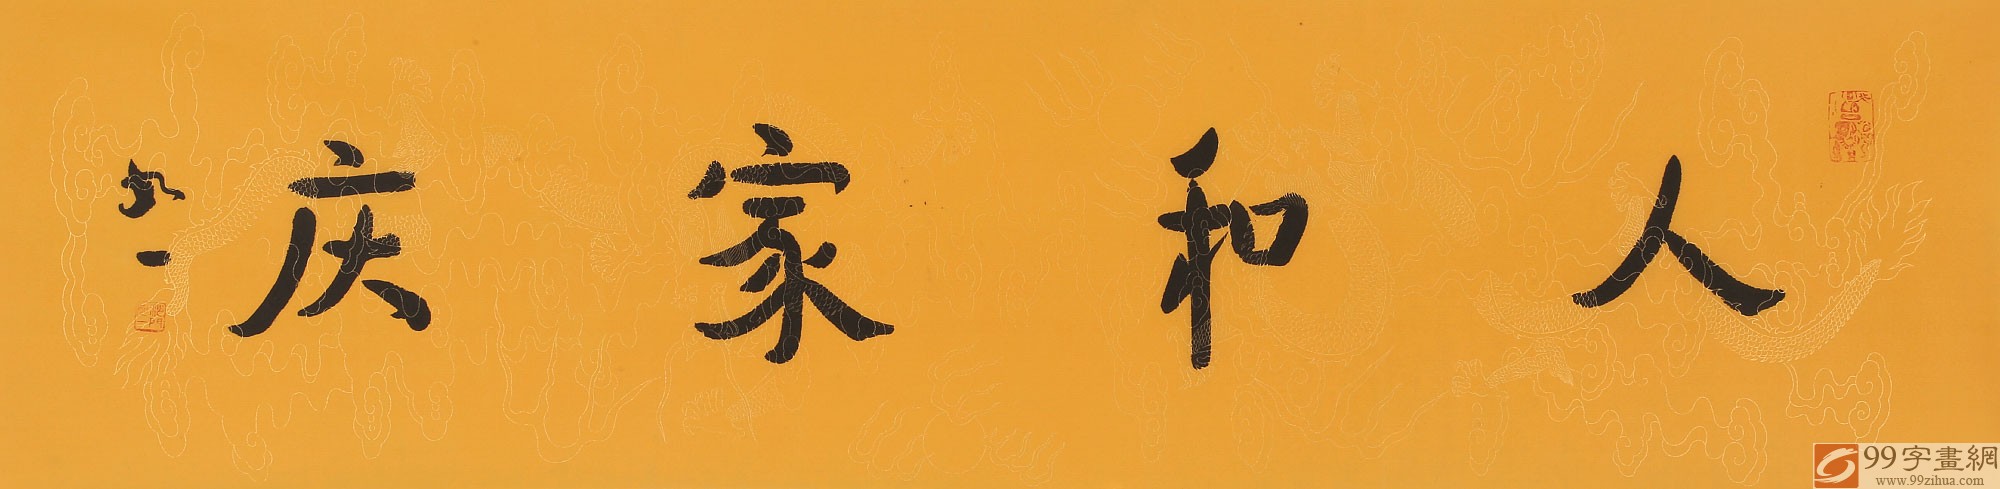 人和家庆
99字畫網
www.99zihua.com